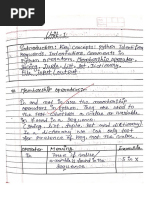 Unit-1
Introduction: Key Concepts: Python Identifiers,
Keywords, Indentation, Comments in
Python, Operators, Membership operator,
Tuple, List, Set, Dictionary,
File Input/Output
Membership operators:
In and not in are the membership
operators in Python. They are used to
test whether a value or variable
is found in a sequence
(String, list, tuple, set and dictionary)
In a dictionary we can only test
for presence of key, not the
Operator Meaning Example
in True if value/
variable is found in the 5 in x
sequence